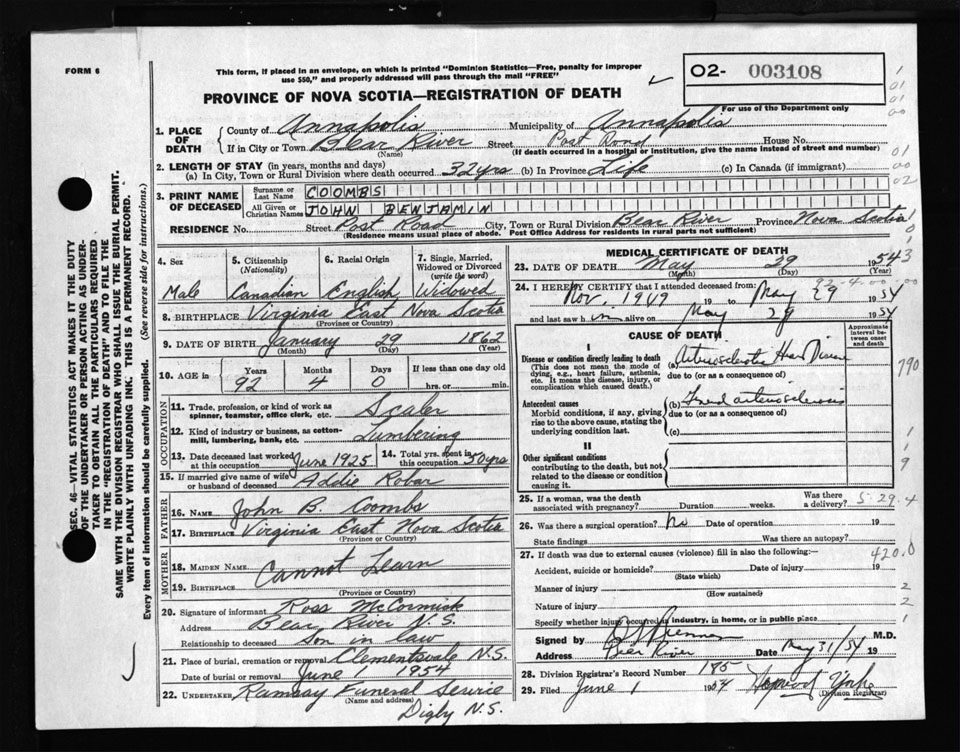 FORM 6
This form, if placed in an envelope, on which is printed "Dominion Statistics—Free, penalty for improper
use $50," and properly addressed will pass through the mail "FREE"
O2- 003108
For use of the Department only
PROVINCE OF NOVA SCOTIA—REGISTRATION OF DEATH
1. PLACE OF DEATH
County of Annapolis Municipality of Annapolis
If in City or Town Bear River Street House No.
(Name) (If death occurred in a hospital or institution, give the name instead of street and number)
2. LENGTH OF STAY (in years, months and days)
(a) In City, Town or Rural Division where death occurred 32 yrs (b) In Province Life (c) In Canada (if immigrant)
3. PRINT NAME OF DECEASED
Surname or Last Name COOMBS
All Given or Christian Names JOHN BENJAMIN
RESIDENCE No. Street City, Town or Rural Division Bear River Province Nova Scotia
(Residence means usual place of abode. Post Office Address for residents in rural parts not sufficient)
4. Sex
Male
5. Citizenship
(Nationality)
Canadian
6. Racial Origin
English
7. Single, Married,
Widowed or Divorced
(write the word)
Widowed
8. BIRTHPLACE Virginia East Nova Scotia
(Province or Country)
9. DATE OF BIRTH January 29 1862
(Month) (Day) (Year)
10. AGE in
Years Months Days If less than one day old
92 4 0 hrs. or min.
OCCUPATION
11. Trade, profession, or kind of work as
spinner, teamster, office clerk, etc. Scaler
12. Kind of industry or business, as cotton-
mill, lumbering, bank, etc. Lumbering
13. Date deceased last worked
at this occupation June 1925
14. Total yrs. spent in
this occupation 30 yrs
15. If married give name of wife
or husband of deceased Addie Robar
FATHER
16. NAME John B. Coombs
17. BIRTHPLACE Virginia East Nova Scotia
(Province or Country)
MOTHER
18. MAIDEN NAME Cannot Learn
19. BIRTHPLACE
(Province or Country)
20. Signature of informant Ross McCormick
Address Bear River N.S.
Relationship to deceased Son in law
21. Place of burial, cremation or removal Clementsvale N.S.
Date of burial or removal June 1 1954
22. UNDERTAKER Ramsay Funeral Service
(Name and address)
Digby N.S.
MEDICAL CERTIFICATE OF DEATH
23. DATE OF DEATH May 29 1954
(Month) (Day) (Year)
24. I HEREBY CERTIFY that I attended deceased from:
Nov. 1949 19 to May 29 1954
and last saw him alive on May 29 1954
CAUSE OF DEATH
Approximate
interval between
onset and
death
I
Disease or condition directly leading to death
(This does not mean the mode of
dying, e.g., heart failure, asthenia,
etc. It means the disease, injury, or
complication which caused death.
(a) Arteriosclerotic Heart Disease
due to (or as a consequence of)
Antecedent causes
Morbid conditions, if any, giving
rise to the above cause, stating the
underlying condition last.
(b) arteriosclerosis
due to (or as a consequence of)
(c)
II
Other significant conditions
contributing to the death, but not
related to the disease or condition
causing it.
25. If a woman, was the death
associated with pregnancy? Duration weeks.
Was there
a delivery?
5-29-4
26. Was there a surgical operation? No Date of operation 19
State findings Was there an autopsy?
27. If death was due to external causes (violence) fill in also the following:
420.0
Accident, suicide or homicide? Date of injury 19
(State which)
Manner of injury
(How sustained)
Nature of injury
Specify whether injury occurred in industry, in home, or in public place
Signed by M.D.
Address Bear River Date May 31/54 19
28. Division Registrar's Record Number 195
29. Filed June 1 1954
(Division Registrar)
SEC. 46—VITAL STATISTICS ACT MAKES IT THE DUTY
OF THE UNDERTAKER OR PERSON ACTING AS UNDER-
TAKER TO OBTAIN ALL THE PARTICULARS REQUIRED
IN THE "REGISTRATION OF DEATH" AND TO FILE THE
SAME WITH THE DIVISION REGISTRAR WHO SHALL ISSUE THE BURIAL PERMIT.
WRITE PLAINLY WITH UNFADING INK. THIS IS A PERMANENT RECORD.
Every item of information should be carefully supplied. (See reverse side for instructions.)